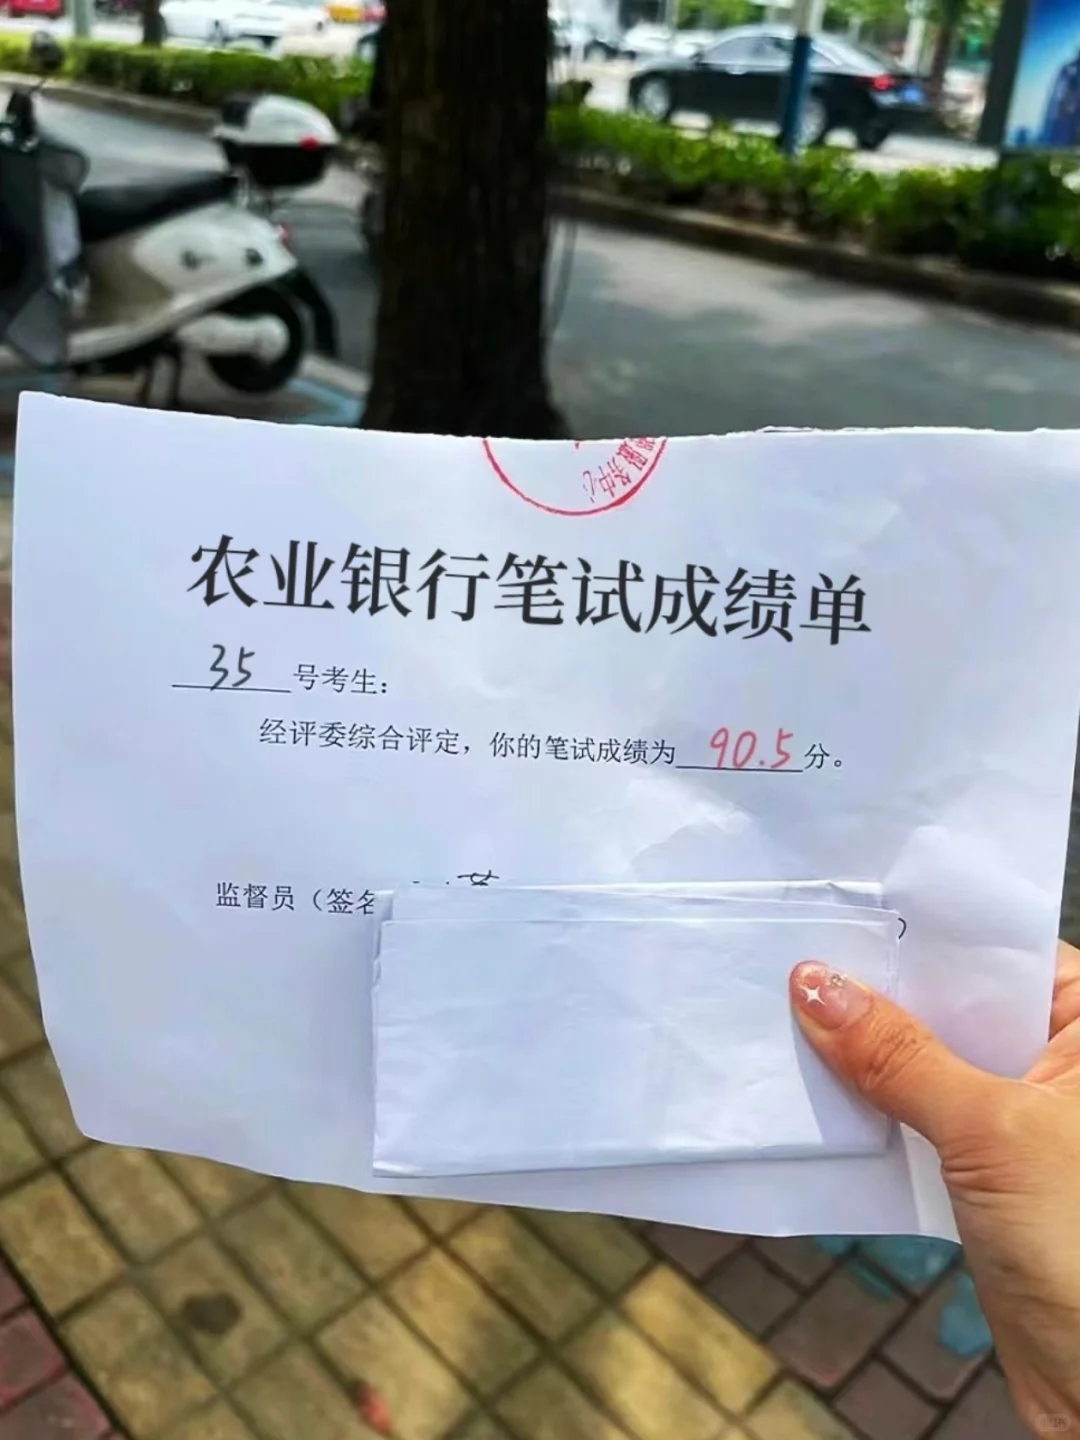 服务中心
农业银行笔试成绩单
35 号考生：
经评委综合评定，你的笔试成绩为 90.5 分。
监督员（签名